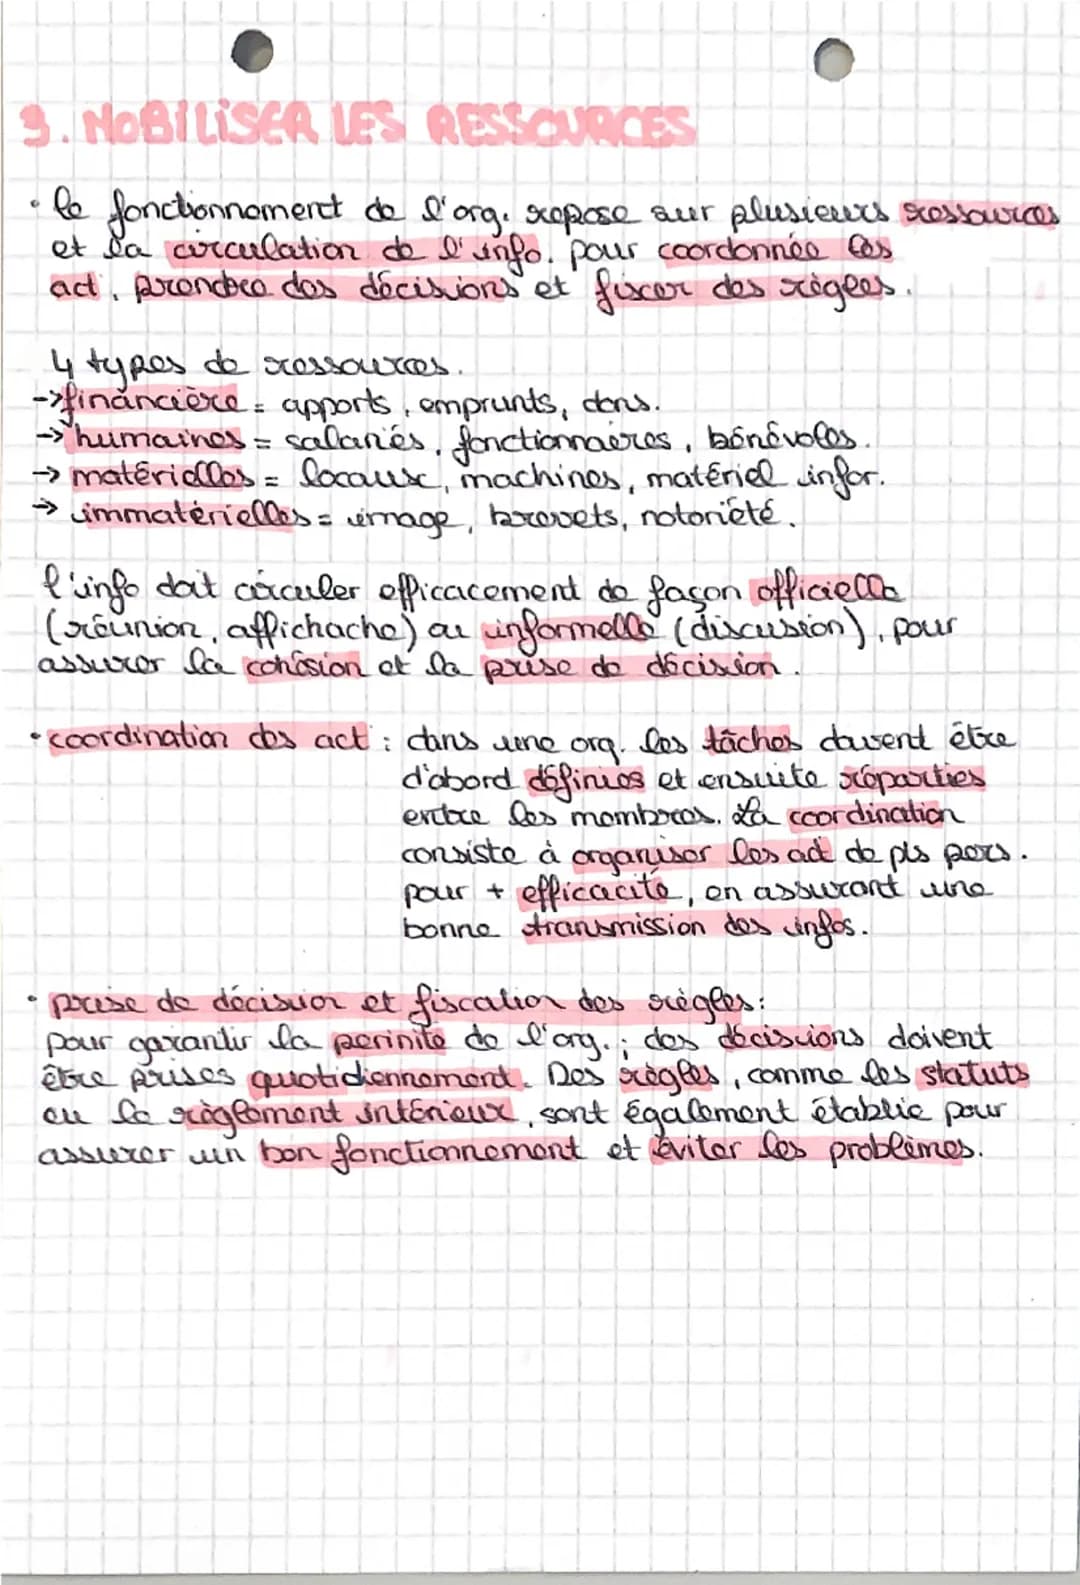 3. MOBILISER LES RESSOURCES
• le fonctionnement de l'org. repose sur plusieurs ressources
et la circulation de l'info. pour coordonnée les
act, prendre des décisions et fixer des règles.
4 types de ressources.
->financière = apports, emprunts, dons.
-> humaines = salariés, fonctionnaires, bénévoles.
-> matérielles = locaux, machines, matériel infor.
-> immatérielles = image, brevets, notoriété.
l'info doit circuler efficacement de façon officielle
(réunion, affichache) ou informelle (discusion), pour
assurer la cohésion et la prise de décision.
• coordination des act : dans une org. les tâches doivent être
d'abord définies et ensuite réparties
entre les membres. La coordination
consiste à organiser les act de pls pers.
pour + efficacité, en assurant une
bonne transmission des infos.
• prise de décision et fiscation des règles:
pour garantir la perinité de l'org. ; des décisions doivent
être prises quotidiennement. Des règles, comme les statuts
ou le règlement intérieux, sont également établie pour
assurer un bon fonctionnement et éviter les problèmes.